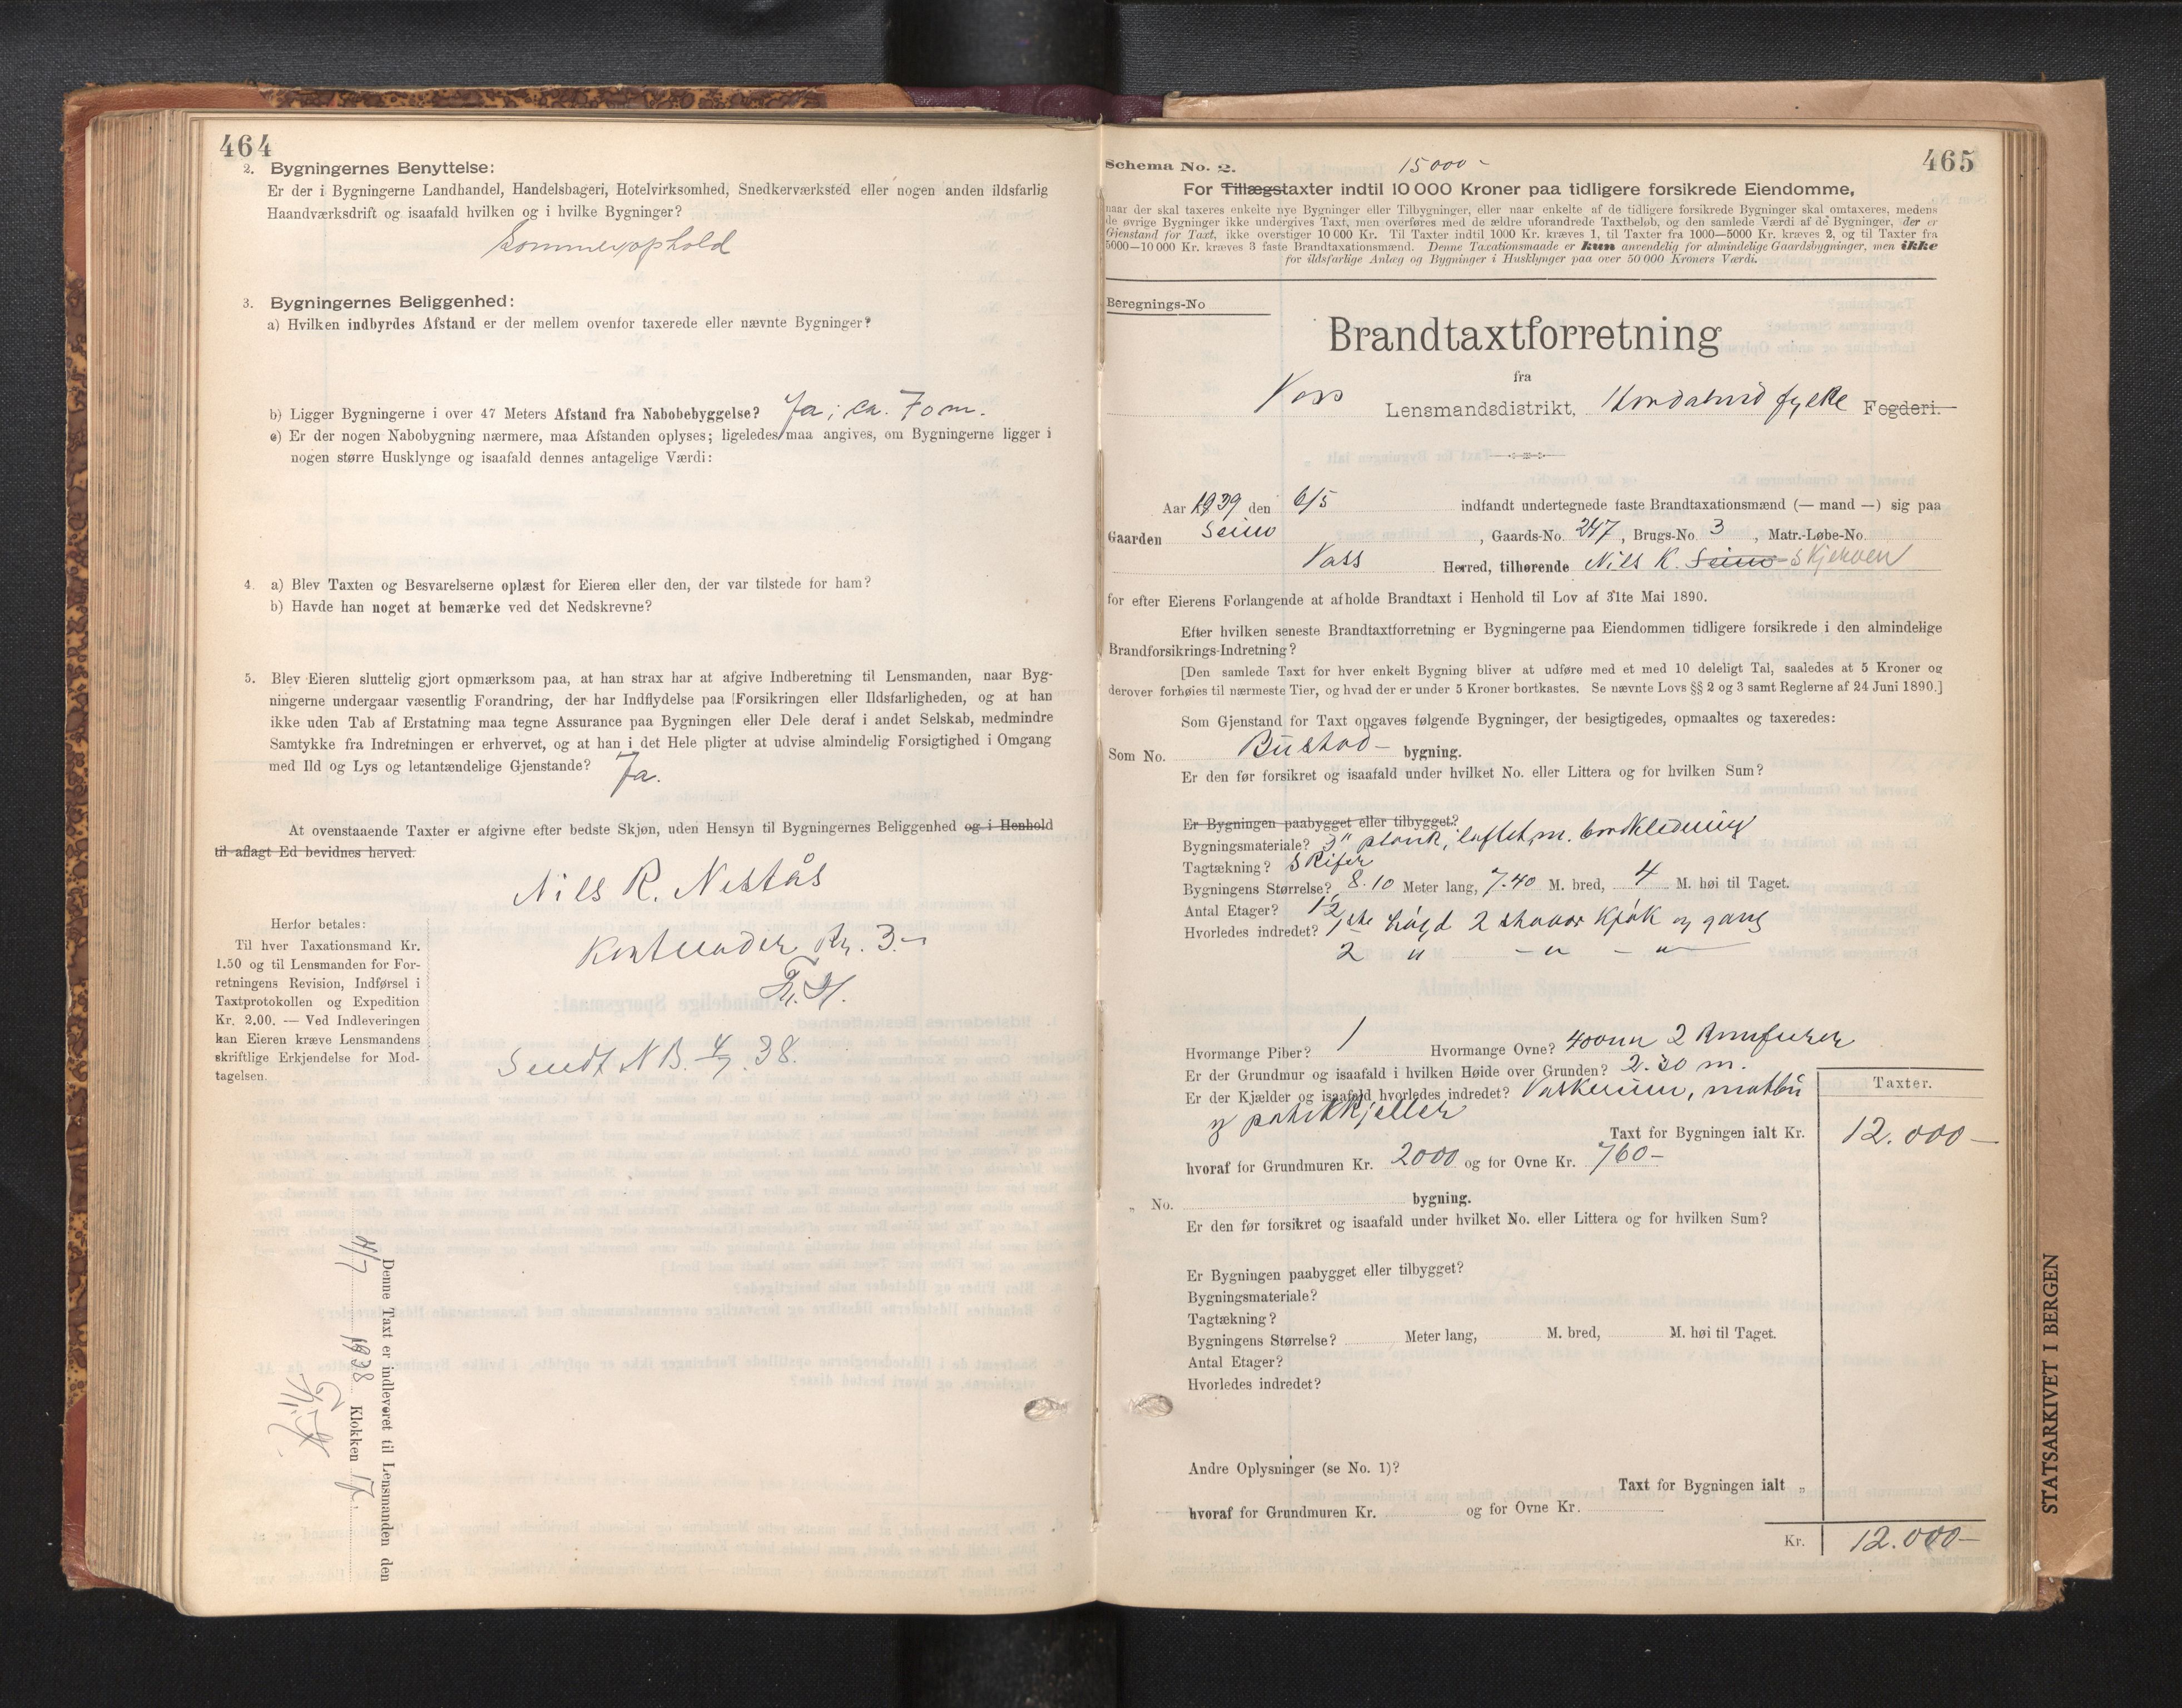 464
2. Bygningernes Benyttelse:
Er der i Bygningerne Landhandel, Handelsbageri, Hotelvirksomhed, Snedkerværksted eller nogen anden ildsfarlig
Haandværksdrift og isaafald hvilken og i hvilke Bygninger?
Sommerophold
3. Bygningernes Beliggenhed:
a) Hvilken indbyrdes Afstand er der mellem ovenfor taxerede eller nævnte Bygninger?
b) Ligger Bygningerne i over 47 Meters Afstand fra Nabobebyggelse? Ja, ca. 70 m.
c) Er der nogen Nabobygning nærmere, maa Afstanden oplyses; ligeledes maa angives, om Bygningerne ligger i
nogen større Husklynge og isaafald dennes antagelige Værdi:
4. a) Blev Taxten og Besvarelserne oplæst for Eieren eller den, der var tilstede for ham?
b) Havde han noget at bemærke ved det Nedskrevne?
5. Blev Eieren sluttelig gjort opmærksom paa, at han strax har at afgive Indberetning til Lensmanden, naar Byg-
ningerne undergaar væsentlig Forandring, der har Indflydelse paa Forsikringen eller Ildsfarligheden, og at han
ikke uden Tab af Erstatning maa tegne Assurance paa Bygningen eller Dele deraf i andet Selskab, medmindre
Samtykke fra Indretningen er erhvervet, og at han i det Hele pligter at udvise almindelig Forsigtighed i Omgang
med Ild og Lys og letantændelige Gjenstande? Ja.
At ovenstaaende Taxter er afgivne efter bedste Skjøn, uden Hensyn til Bygningernes Beliggenhed og i Henhold
til aflagt Ed bevidnes herved.
Nils R. Nestås
Kr. 3.-
Herfor betales:
Til hver Taxationsmand Kr.
1.50 og til Lensmanden for For-
retningens Revision, Indførsel i
Taxtprotokollen og Expedition
Kr. 2.00. — Ved Indleveringen
kan Eieren kræve Lensmandens
skriftlige Erkjendelse for Mod-
tagelsen.
Sendt N B. 4/7. 38.
Denne Taxt er indleveret til Lensmanden den
4/7 1938 Klokken 17.
465
Schema No. 2. 15000-
For Tillægstaxter indtil 10 000 Kroner paa tidligere forsikrede Eiendomme,
naar der skal taxeres enkelte nye Bygninger eller Tilbygninger, eller naar enkelte af de tidligere forsikrede Bygninger skal omtaxeres, medens
de øvrige Bygninger ikke undergives Taxt, men overføres med de ældre uforandrede Taxtbeløb, og den samlede Værdi af de Bygninger, der er
Gjenstand for Taxt, ikke overstiger 10 000 Kr. Til Taxter indtil 1000 Kr. kræves 1, til Taxter fra 1000—5000 Kr. kræves 2, og til Taxter fra
5000—10 000 Kr. kræves 3 faste Brandtaxationsmænd. Denne Taxationsmaade er kun anvendelig for almindelige Gaardsbygninger, men ikke
for ildsfarlige Anlæg og Bygninger i Husklynger paa over 50 000 Kroners Værdi.
Beregnings-No
Brandtaxtforretning
fra
Voss Lensmandsdistrikt, Hordaland fylke Fogderi.
Aar 1939 den 6/5 indfandt undertegnede faste Brandtaxationsmænd (— mand —) sig paa
Gaarden Seim, Gaards-No. 247, Brugs-No. 3, Matr.-Løbe-No.
Voss Herred, tilhørende Nils K. Seim Skjerven
for efter Eierens Forlangende at afholde Brandtaxt i Henhold til Lov af 31te Mai 1890.
Efter hvilken seneste Brandtaxtforretning er Bygningerne paa Eiendommen tidligere forsikrede i den almindelige
Brandforsikrings-Indretning?
[Den samlede Taxt for hver enkelt Bygning bliver at udføre med et med 10 deleligt Tal, saaledes at 5 Kroner og
derover forhøies til nærmeste Tier, og hvad der er under 5 Kroner bortkastes. Se nævnte Lovs §§ 2 og 3 samt Reglerne af 24 Juni 1890.]
Som Gjenstand for Taxt opgaves følgende Bygninger, der besigtigedes, opmaaltes og taxeredes:
Som No. Bustad- bygning.
Er den før forsikret og isaafald under hvilket No. eller Littera og for hvilken Sum?
Er Bygningen paabygget eller tilbygget?
Bygningsmateriale? 3" plank, laftet, m. bordkledning
Tagtækning? Skifer
Bygningens Størrelse? 8.10 Meter lang, 7.40 M. bred, 4 M. høi til Taget.
Antal Etager? 1½
Hvorledes indredet? 1ste høgd 2 stover kjøk og gang
2 " - " - " -
Hvormange Piber? 1 Hvormange Ovne? 4 ovnn 2
Er der Grundmur og isaafald i hvilken Høide over Grunden? 2.30 m.
Er der Kjælder og isaafald hvorledes indredet? Vaskerum, matbu
og potetkjeller
Taxter.
Taxt for Bygningen ialt Kr. 12.000-
hvoraf for Grundmuren Kr. 2000 og for Ovne Kr. 760-
„ No. bygning.
Er den før forsikret og isaafald under hvilket No. eller Littera og for hvilken Sum?
Er Bygningen paabygget eller tilbygget?
Bygningsmateriale?
Tagtækning?
Bygningens Størrelse? Meter lang, M. bred, M. høi til Taget.
Antal Etager?
Hvorledes indredet?
Andre Oplysninger (se No. 1)?
Taxt for Bygningen ialt „
hvoraf for Grundmuren Kr. og for Ovne Kr.
Kr. 12.000-
STATSARKIVET I BERGEN